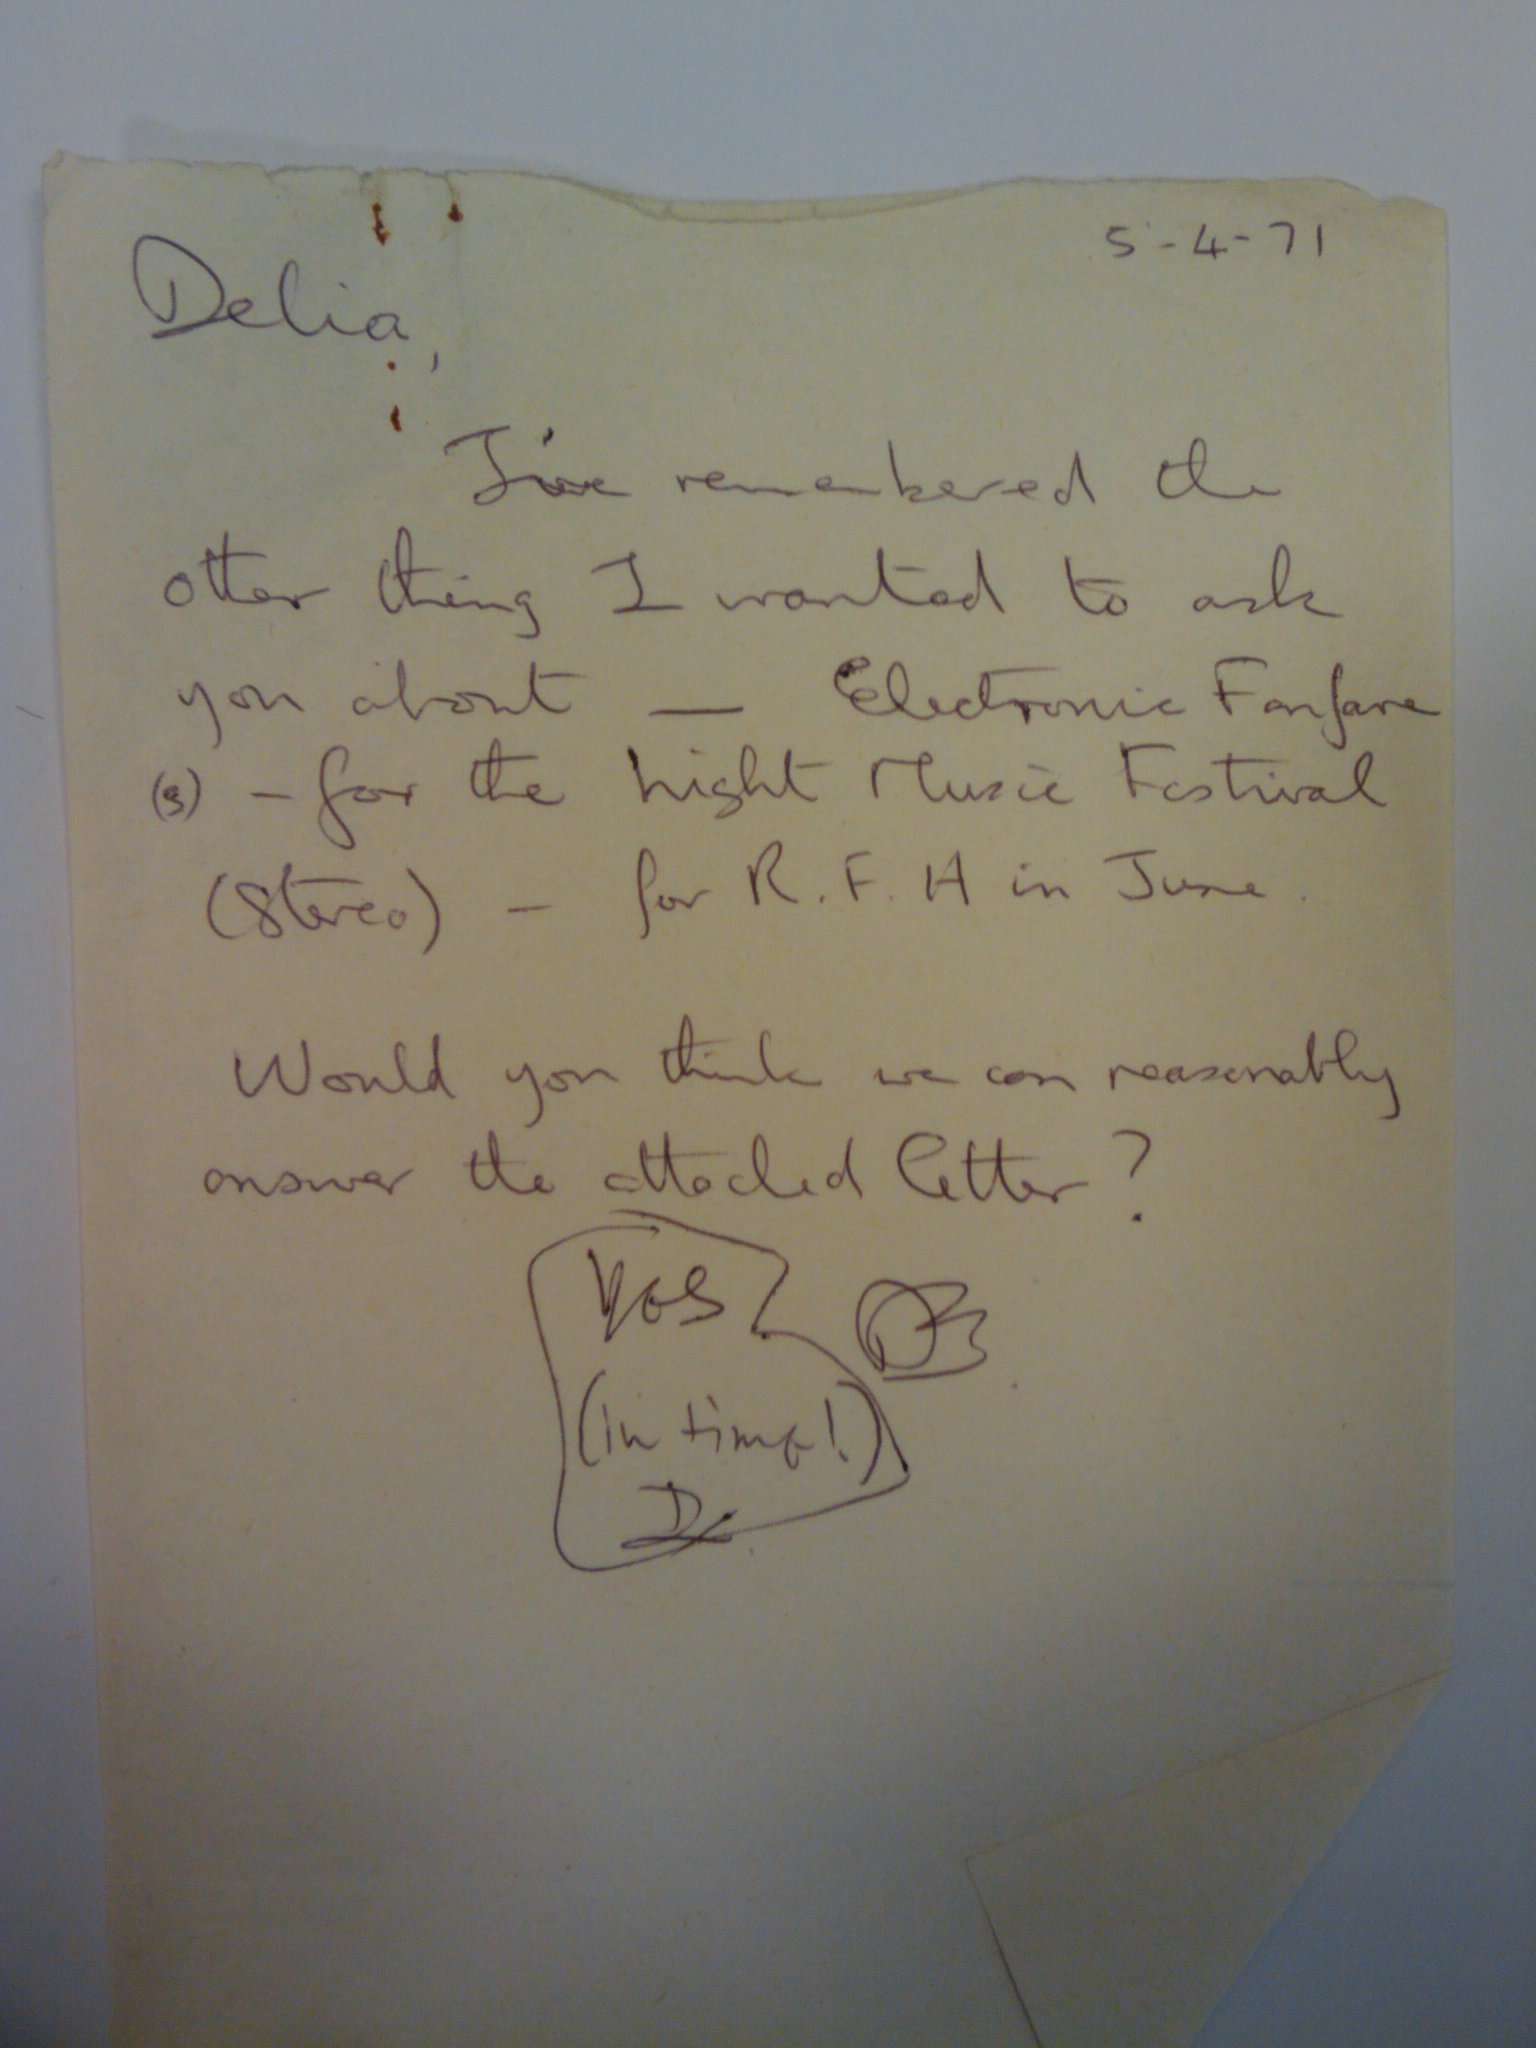 5-4-71
Delia,
I've remembered the
other thing I wanted to ask
you about — Electronic Fanfare
(s) - for the Light Music Festival
(Stereo) - for R.F.H in June.
Would you think we can reasonably
answer the attached letter?
Yes
(in time!)
D